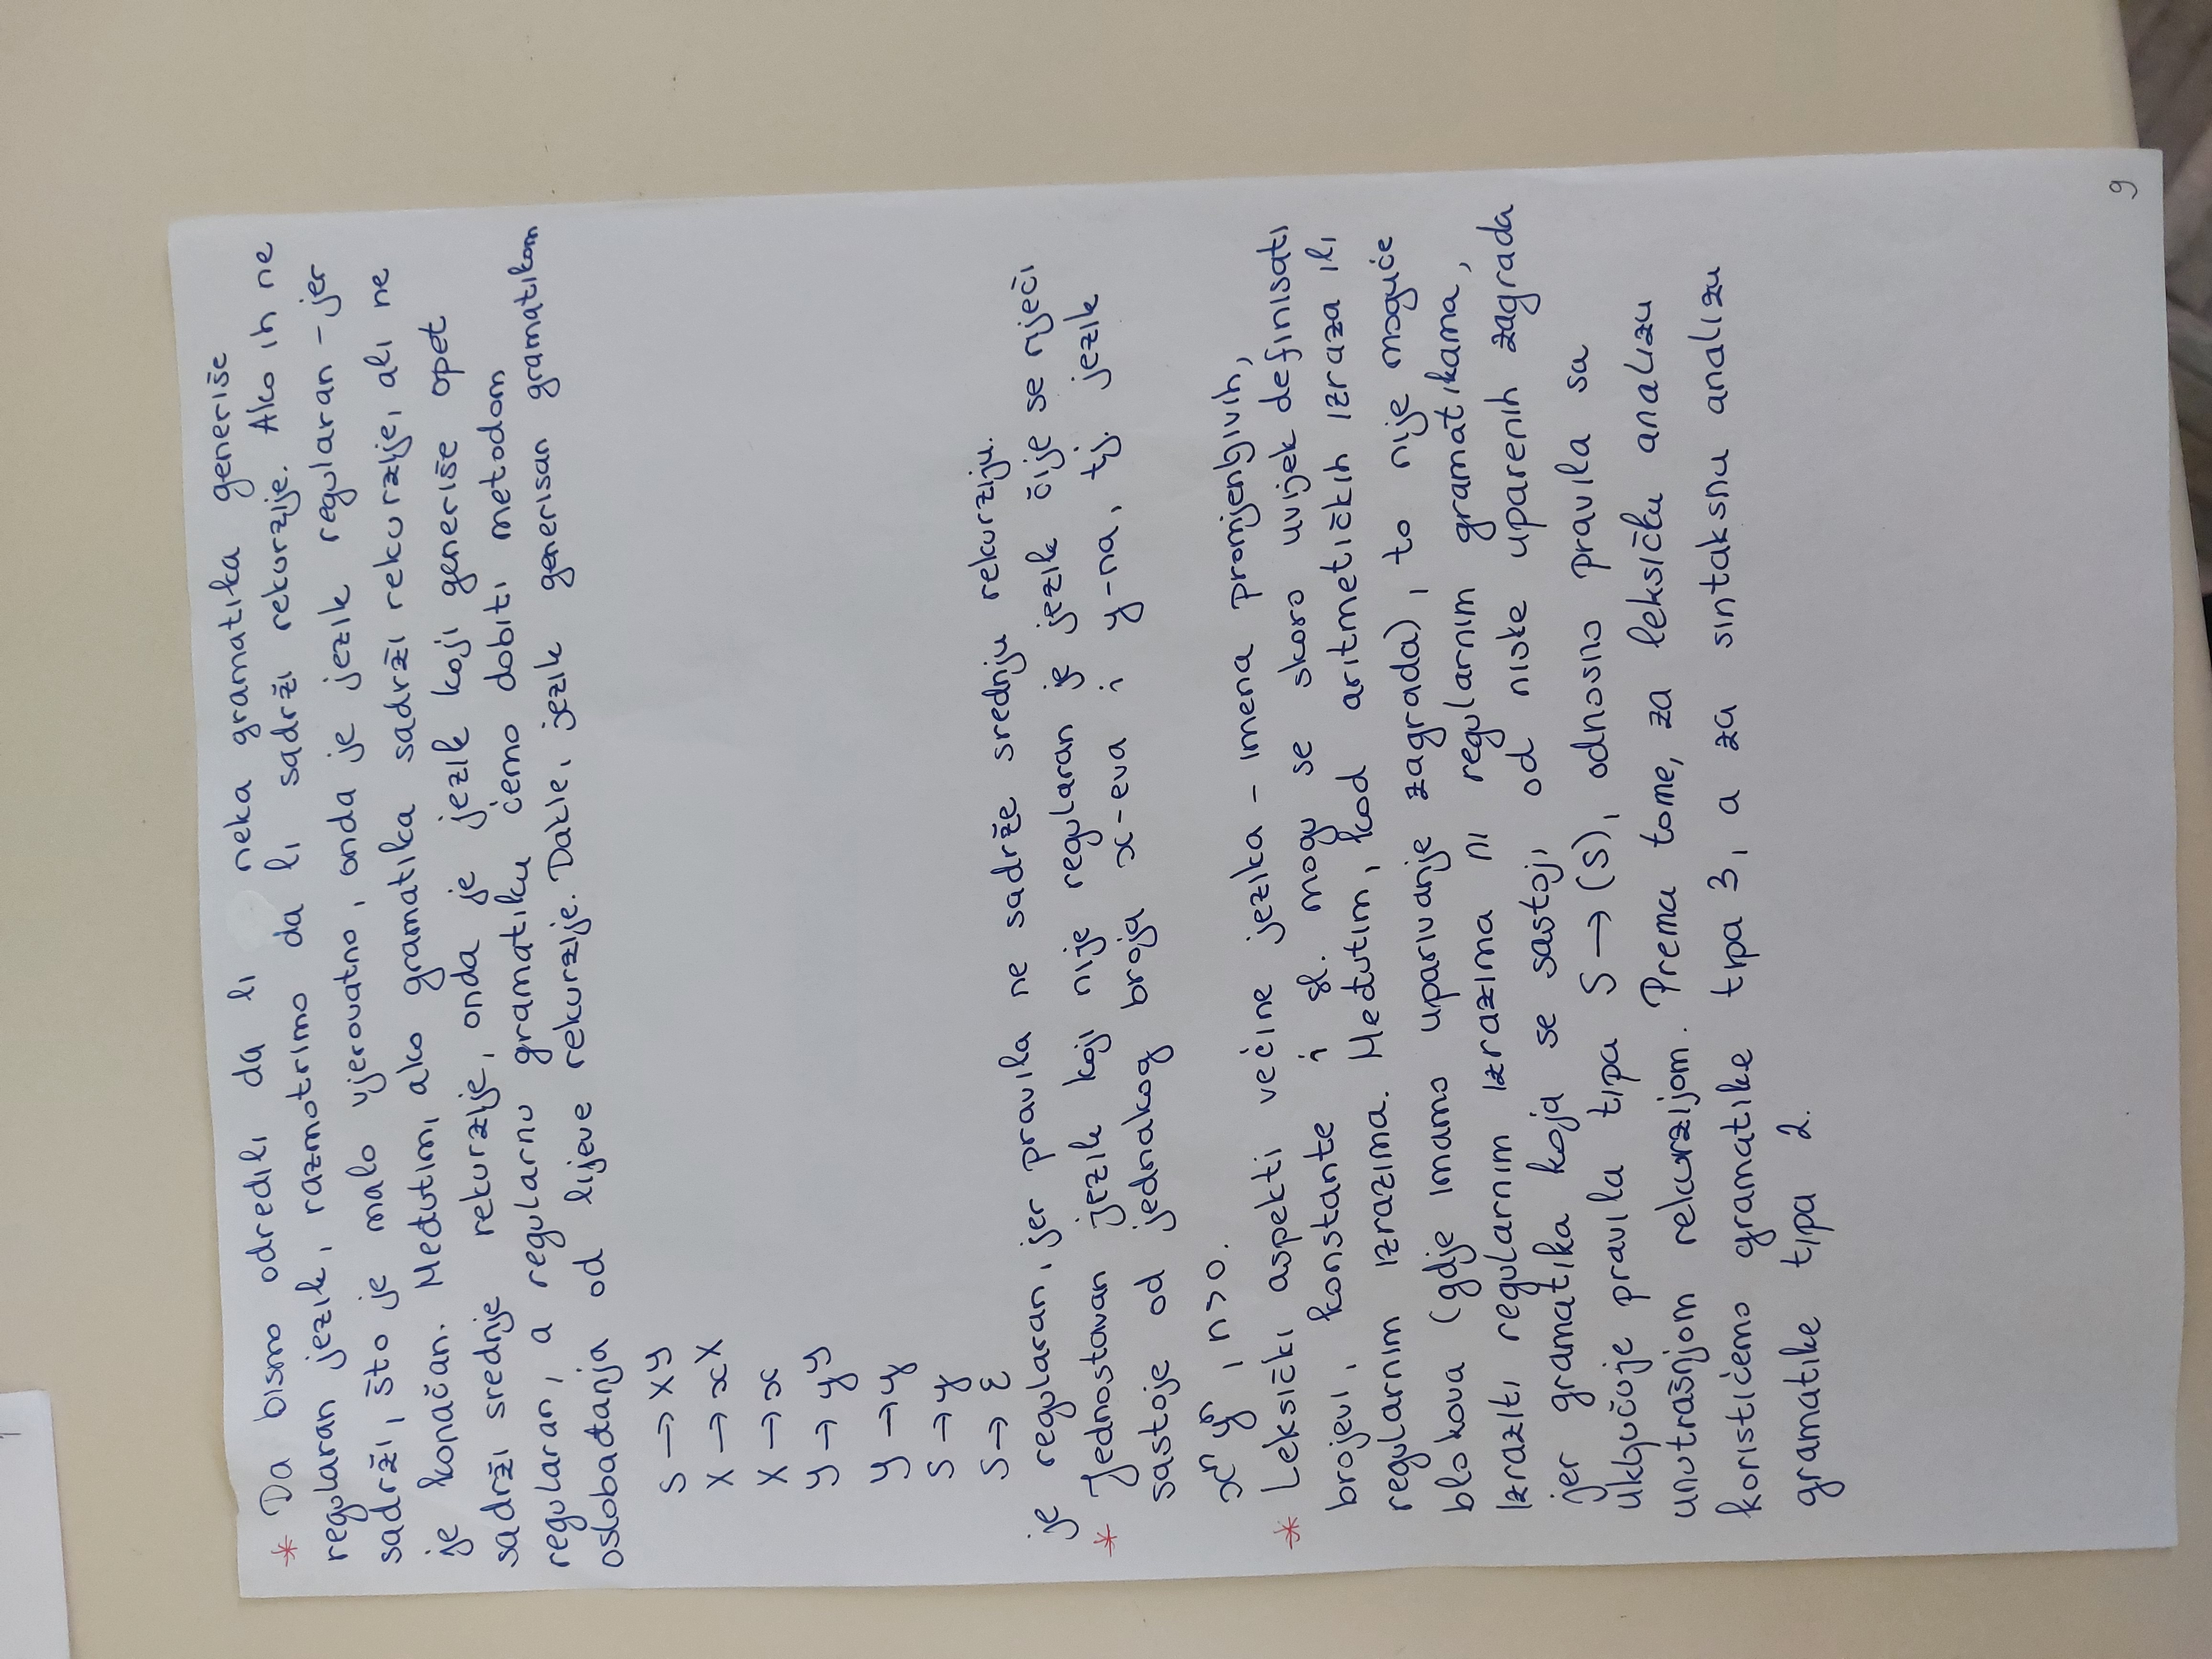 * Da bismo odredili da li neka gramatika generiše
regularan jezik, razmotrimo da li sadrži rekurzije. Ako ih ne
sadrži, što je malo vjerovatno, onda je jezik regularan - jer
je konačan. Međutim, ako gramatika sadrži rekurzije, ali ne
sadrži srednje rekurzije, onda je jezik koji generiše opet
regularan, a regularnu gramatiku ćemo dobiti metodom
oslobađanja od lijeve rekurzije. Dakle, jezik generisan gramatikom
S → XY
X → xX
X → x
Y → yY
Y → y
S → y
S → ε
je regularan, jer pravila ne sadrže srednju rekurziju.
* Jednostavan jezik koji nije regularan je jezik čije se riječi
sastoje od jednakog broja x-eva i y-na, tj. jezik
xⁿ yⁿ, n>0.
* Leksički aspekti većine jezika - imena promjenljivih,
brojevi, konstante i sl. mogu se skoro uvijek definisati
regularnim izrazima. Međutim, kod aritmetičkih izraza ili
blokova (gdje imamo uparivanje zagrada), to nije moguće
izraziti regularnim izrazima ni regularnim gramatikama,
jer gramatika koja se sastoji od niske uparenih zagrada
uključuje pravila tipa S → (S), odnosno pravila sa
unutrašnjom rekurzijom. Prema tome, za leksičku analizu
koristićemo gramatike tipa 3, a za sintaksnu analizu
gramatike tipa 2.
9